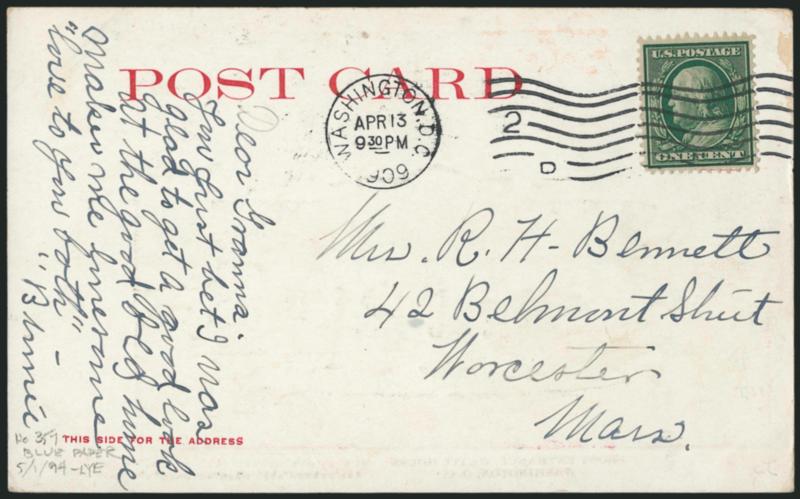 POST CARD
U.S. POSTAGE
ONE CENT
WASHINGTON, D.C.
APR 13
9 30 PM
1909
2
D
Mrs. R. H. Bennett
42 Belmont Street
Worcester
Mass.
Dear Gramma -
You just bet I was
glad to get a good look
at the good old home
Makes me lonesome
"love to you both"
THIS SIDE FOR THE ADDRESS
No 357
BLUE PAPER
5/1/94 - LYE